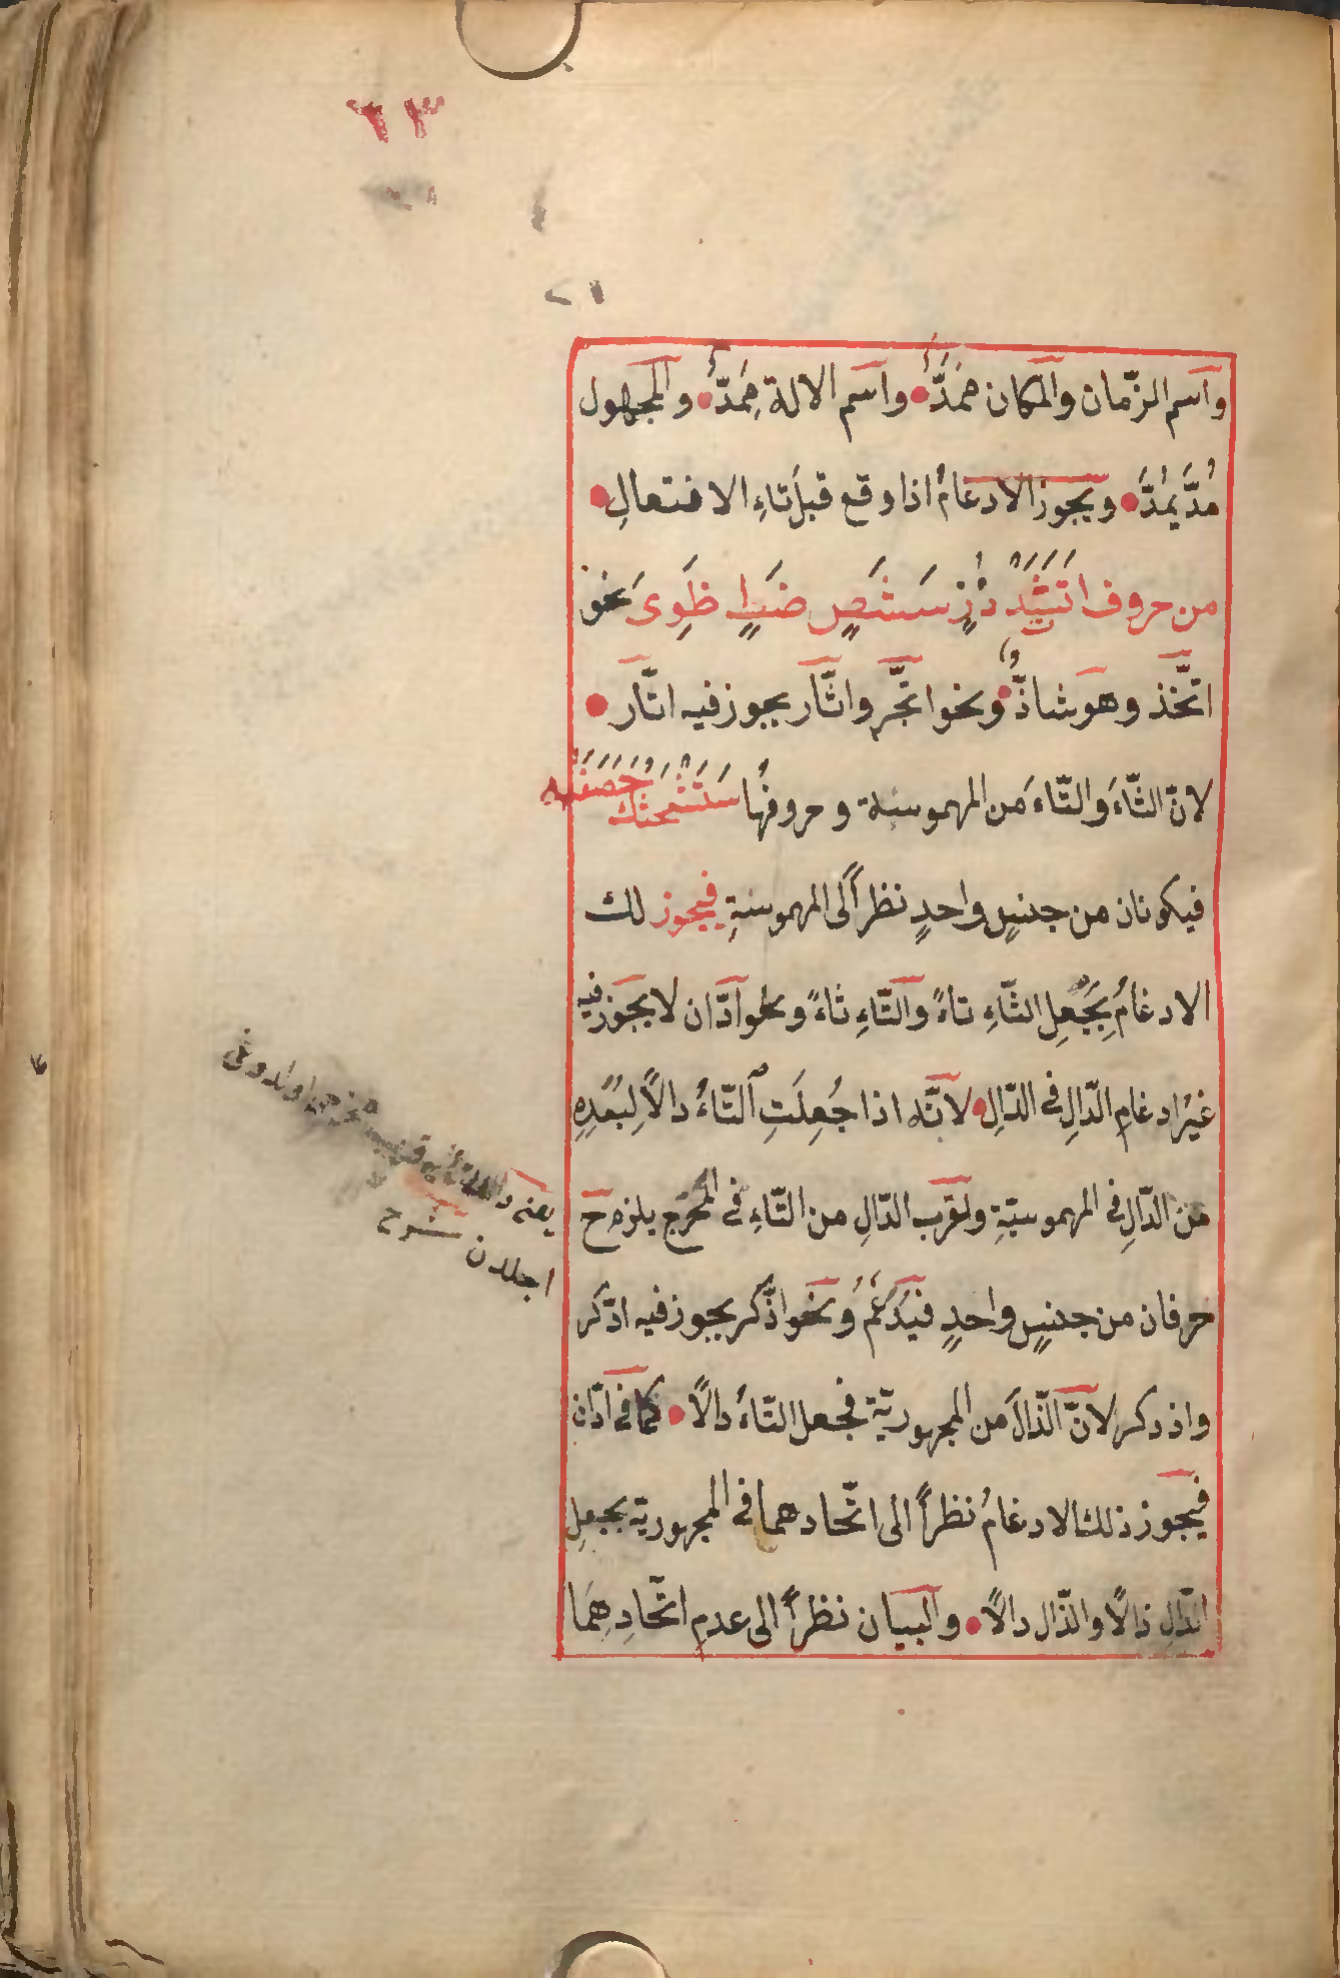 ٦٣
واسم الزّمان والمكان مَمَدٌّ واسم الالة مِمَدٌّ والمجهول
مُدَّ يُمَدُّ ويجوز الادغامُ اذا وقع قبلَ تاءِ الافتعالِ
من حروف اتثد ذزٍ سَشَصٍ ضَطٍ ظَوِىَ نحو
اتّخذ وهو شاذٌّ ونحو اتّجر واثّار يجوز فيه اتّار
لانّ الثّاءَ والتّاءَ من المهموسيّة وحروفُها سَتَشْحَثُكَ خَصَفَه
فيكونان من جنسٍ واحدٍ نظراً الى المهموسيّةِ فيجوز لك
الادغامُ بِجَعلِ الثّاءِ تاءً والتّاءِ ثاءً ونحو ادّان لا يجوز فيه
غيرُ ادغامِ الدّالِ فى الدّالِ لانّه اذا جُعِلَتِ التّاءُ دالاً لِبُعْدِهِ
من الدّالِ فى المهموسيّةِ ولقرب الدّالِ من التّاءِ فى المخرج يلزم ح
حرفان من جنسٍ واحدٍ فيُدْغَمُ ونحو اذّكر يجوز فيه ادّكر
واذدكر لانّ الذّالَ من المجهوريّة فجعل التّاءُ دالاً كما فى ادّان
فيجوز ذلك الادغامُ نظراً الى اتّحادهما فى المجهوريّة بجعلِ
الدّالِ ذالاً والذّال دالاً والبيان نظراً الى عدمِ اتّحادِهِمَا
يعنى دال تايه قريب مخرجى اولدوغى
اجلدن شرح